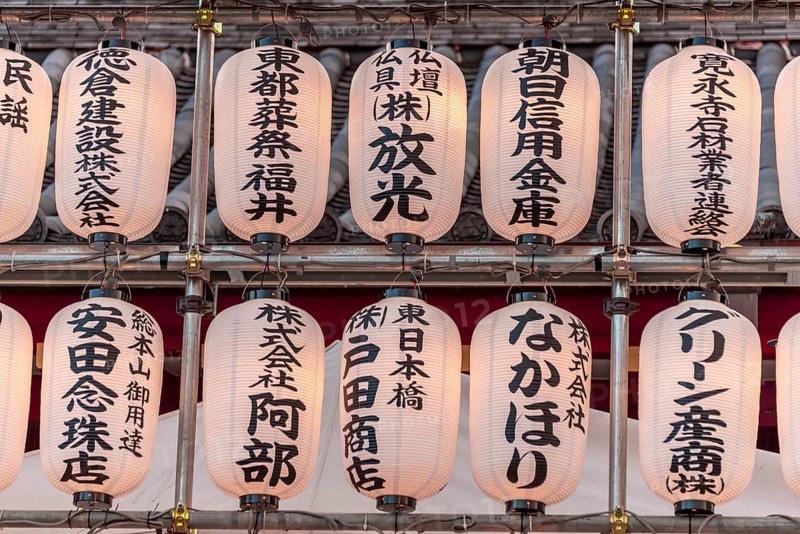 民謡
徳倉建設株式会社
東都葬祭福井
仏壇
仏具
(株)放光
朝日信用金庫
寛永寺石材業者連絡会
総本山御用達
安田念珠店
株式会社阿部
東日本橋
(株)戸田商店
株式会社
なかほり
グリーン産商(株)